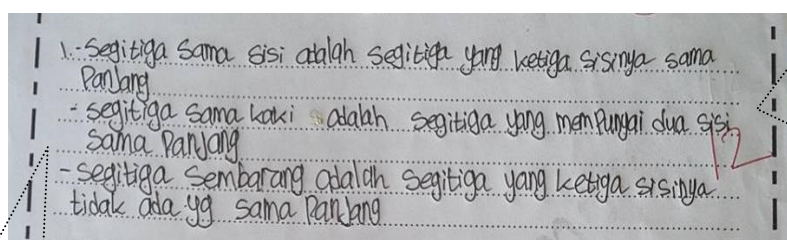 1. - Segitiga Sama sisi adalah segitiga yang ketiga sisinya sama
Panjang
- segitiga sama kaki adalah segitiga yang mempungai dua sisi
sama Panjang
12
- segitiga sembarang adalah segitiga yang ketiga sisinya
tidak ada yg sama Panjang